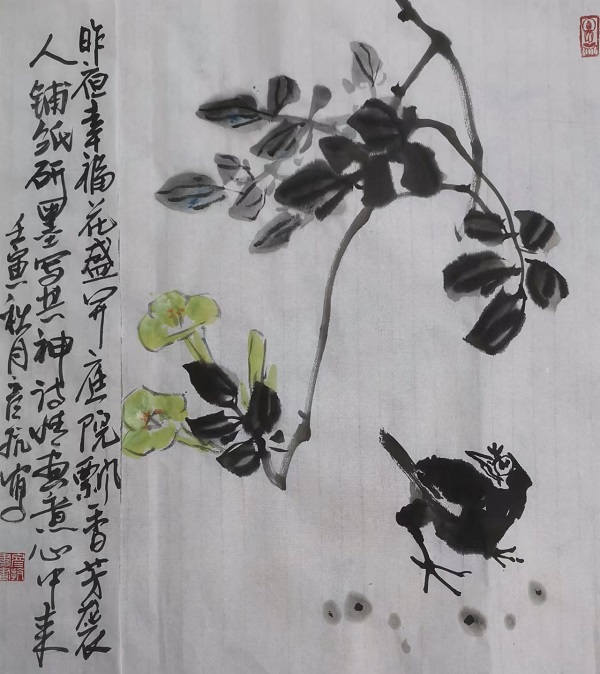 昨夜幸福花盛开庭院飘香芳袭
人铺纸研墨写其神诗情画意心中来
壬寅秋月彦航写